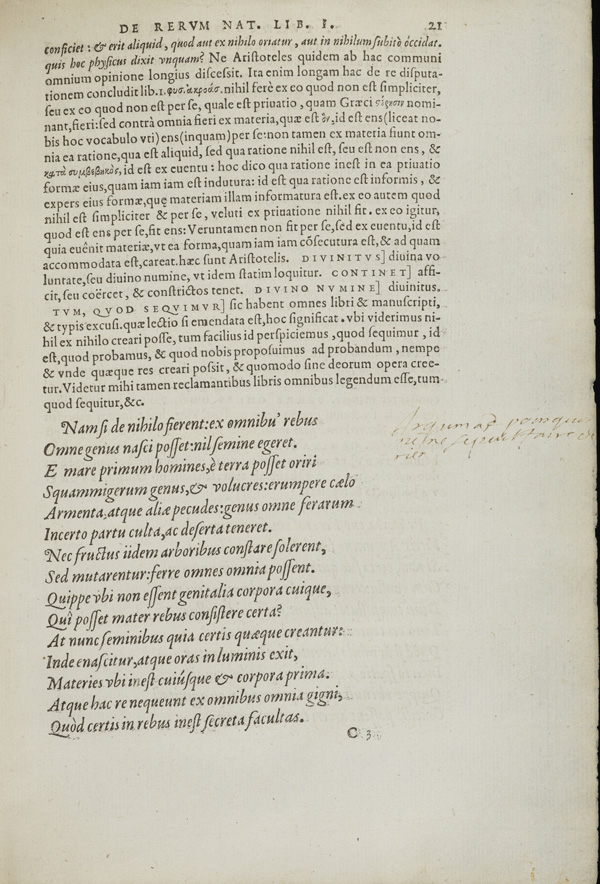 DE RERVM NAT. LIB. I. 21
conficiet: & erit aliquid, quod aut ex nihilo oriatur, aut in nihilum subitò occidat.
quis hoc physicus dixit vnquam? Ne Aristoteles quidem ab hac communi
omnium opinione longius discessit. Ita enim longam hac de re disputa-
tionem concludit lib. 1. φυσ. ἀκροάσ. nihil ferè ex eo quod non est simpliciter,
seu ex eo quod non est per se, quale est priuatio, quam Græci στέρησιν nomi-
nant, fieri: sed contrà omnia fieri ex materia, quæ est ὂν, id est ens (liceat no-
bis hoc vocabulo vti) ens (inquam) per se: non tamen ex materia fiunt om-
nia ea ratione, qua est aliquid, sed qua ratione nihil est, seu est non ens, &
κατὰ συμβεβηκὸς, id est ex euentu: hoc dico qua ratione inest in ea priuatio
formæ eius, quam iam iam est indutura: id est qua ratione est informis, &
expers eius formæ, quę materiam illam informatura est. ex eo autem quod
nihil est simpliciter & per se, veluti ex priuatione nihil fit. ex eo igitur,
quod est ens per se, fit ens: Veruntamen non fit per se, sed ex euentu, id est
quia euênit materiæ, vt ea forma, quam iam iam cōsecutura est, & ad quam
accommodata est, careat. hæc sunt Aristotelis. DIVINITVS] diuina vo-
luntate, seu diuino numine, vt idem statim loquitur. CONTINET] affi-
cit, seu coërcet, & constrictos tenet. DIVINO NVMINE] diuinitus.
TVM, QVOD SEQVIMVR] sic habent omnes libri & manuscripti,
& typis excusi. quæ lectio si emendata est, hoc significat. vbi viderimus ni-
hil ex nihilo creari posse, tum facilius id perspiciemus, quod sequimur, id
est, quod probamus, & quod nobis proposuimus ad probandum, nempe
& vnde quæque res creari possit, & quomodo sine deorum opera cree-
tur. Videtur mihi tamen reclamantibus libris omnibus legendum esse, tum
quod sequitur, &c.
Nam si de nihilo fierent: ex omnibu' rebus
Omne genus nasci posset: nil semine egeret.
E mare primum homines, è terra posset oriri
Squammigerum genus, & volucres: erumpere cælo
Armenta, atque aliæ pecudes: genus omne ferarum
Incerto partu culta, ac deserta teneret.
Nec fructus iidem arboribus constare solerent,
Sed mutarentur: ferre omnes omnia possent.
Quippe vbi non essent genitalia corpora cuique,
Quî posset mater rebus consistere certa?
At nunc seminibus quia certis quæque creantur:
Inde enascitur, atque oras in luminis exit,
Materies vbi inest cuiúsque & corpora prima.
Atque hac re nequeunt ex omnibus omnia gigni,
Quòd certis in rebus inest secreta facultas.
C 3